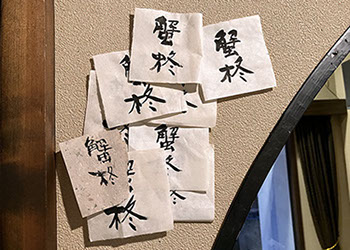 蟹柊
蟹柊
柊
蟹柊
蟹柊
柊